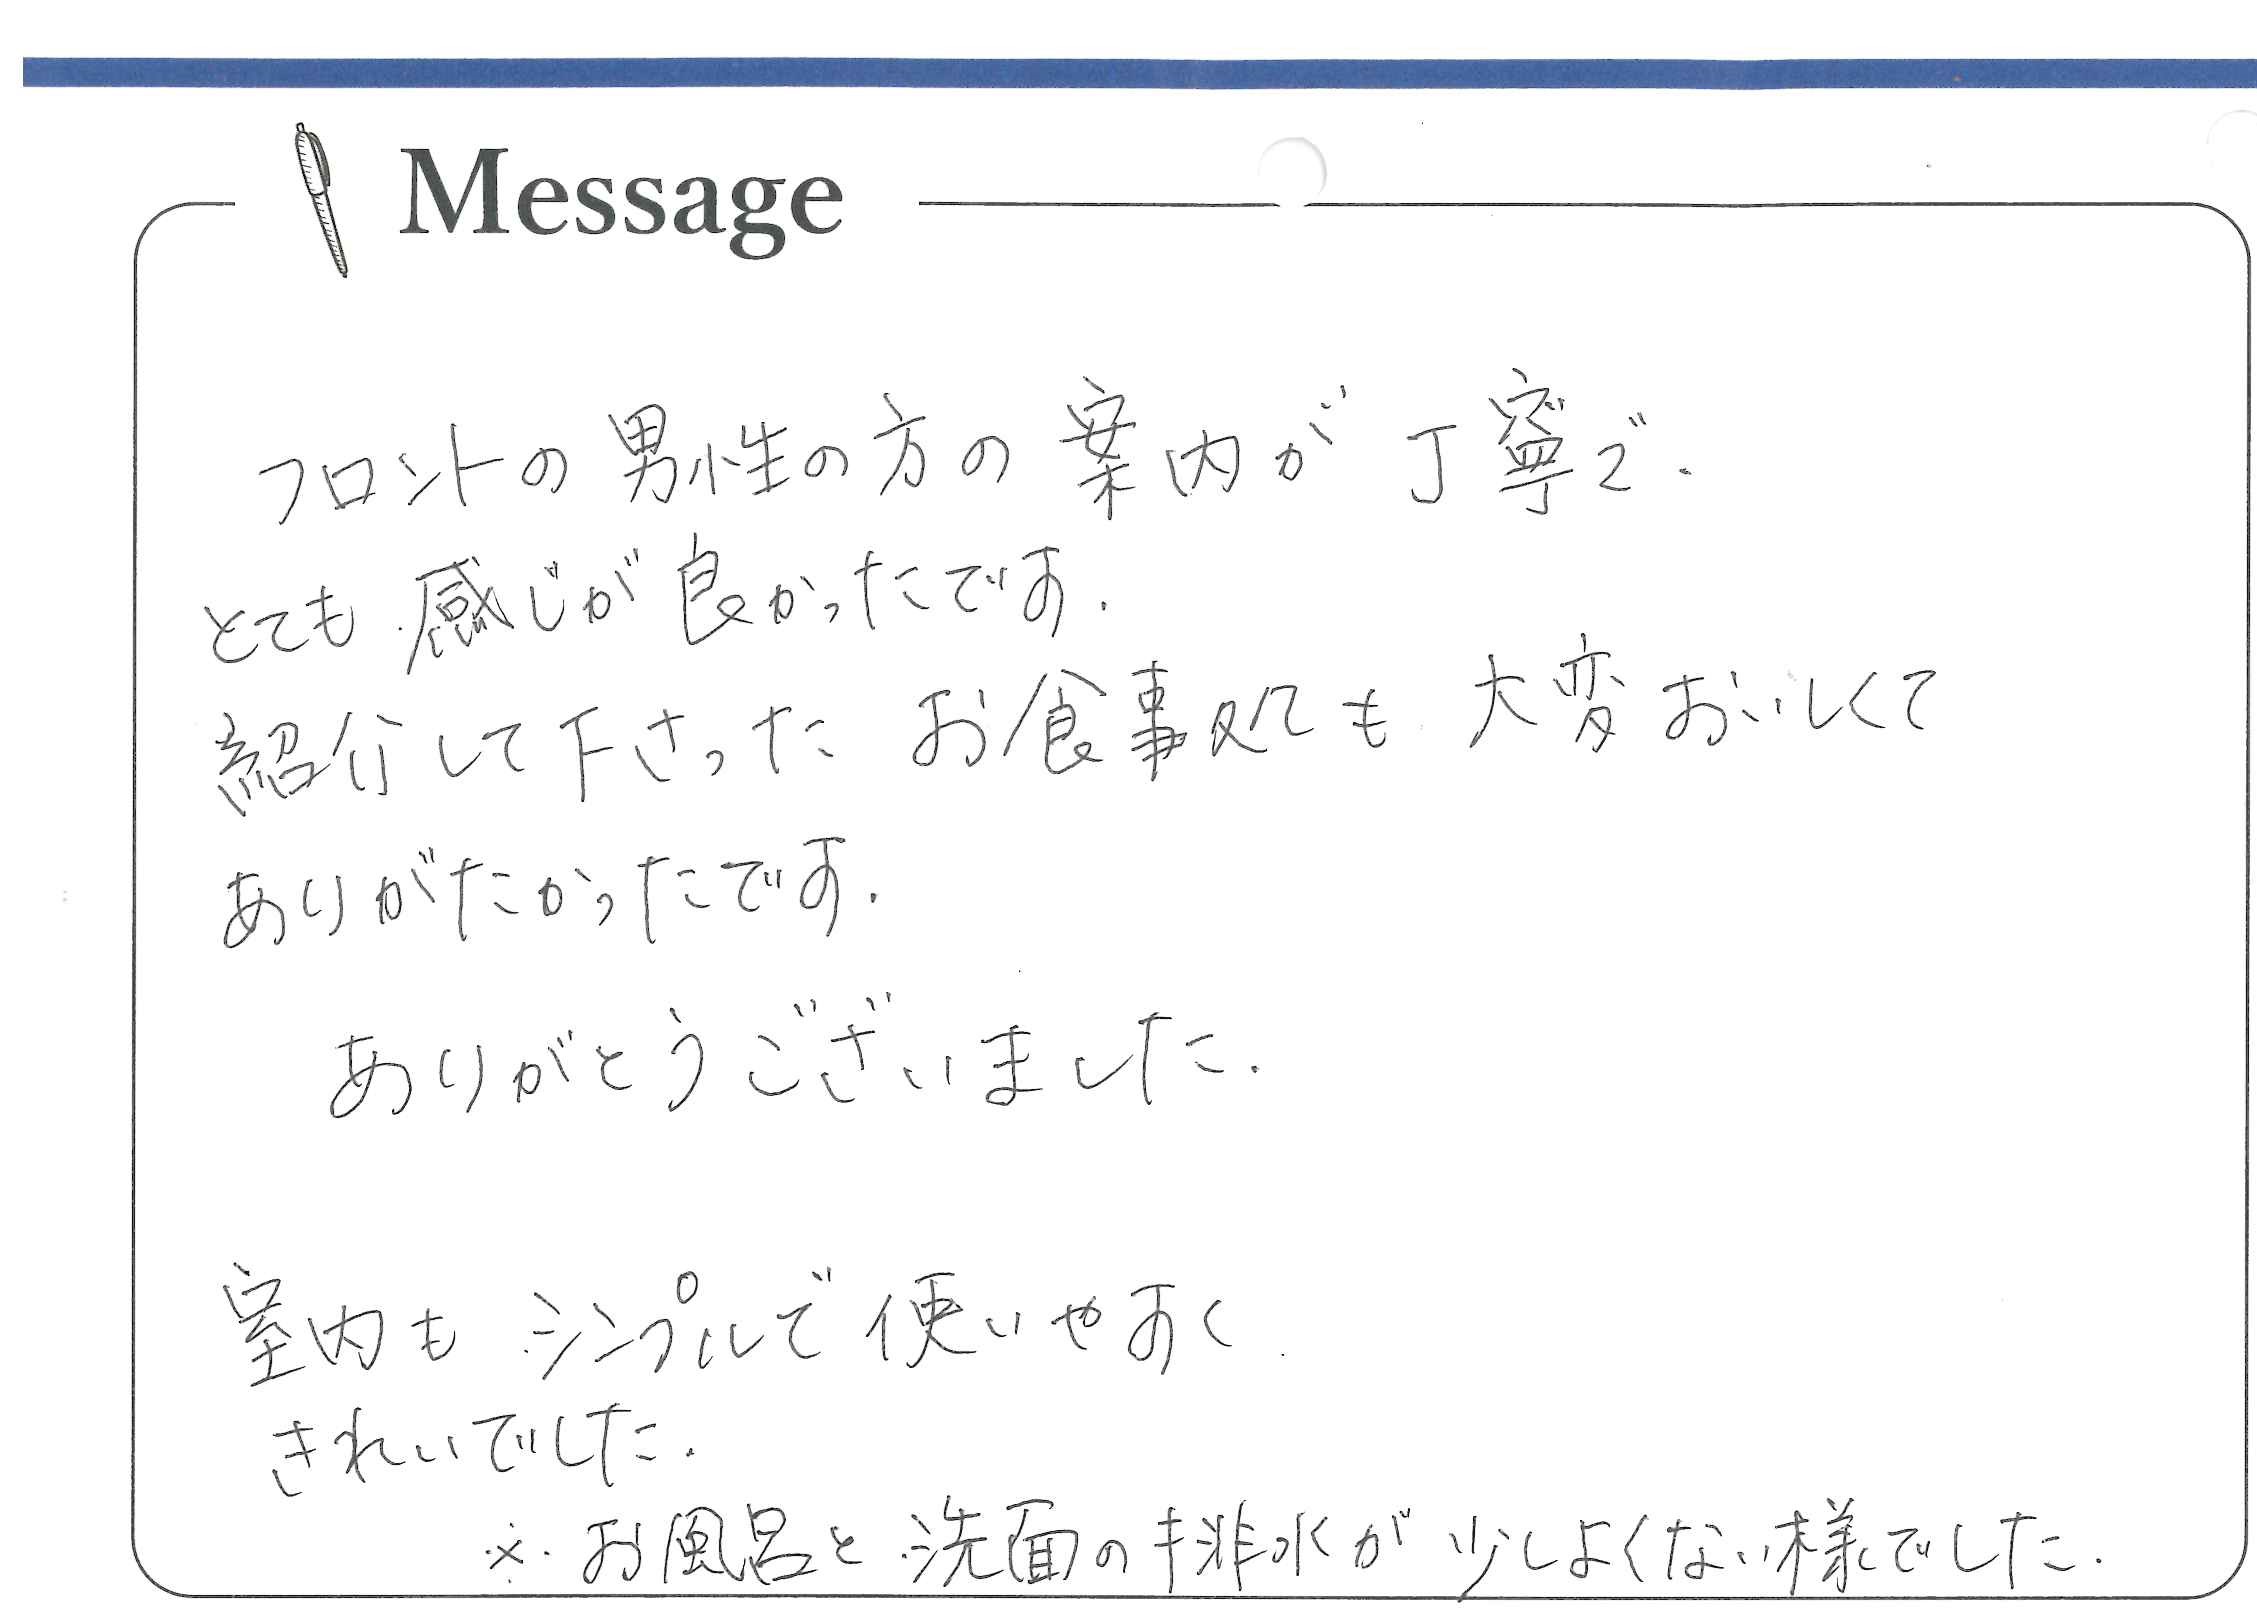 Message
フロントの男性の方の案内が丁寧で.
とても感じが良かったです.
紹介して下さったお食事処も大変おいしくて
ありがたかったです.
ありがとうございました.
室内もシンプルで使いやすく
きれいでした.
※.お風呂と洗面の排水が少しよくない様でした.